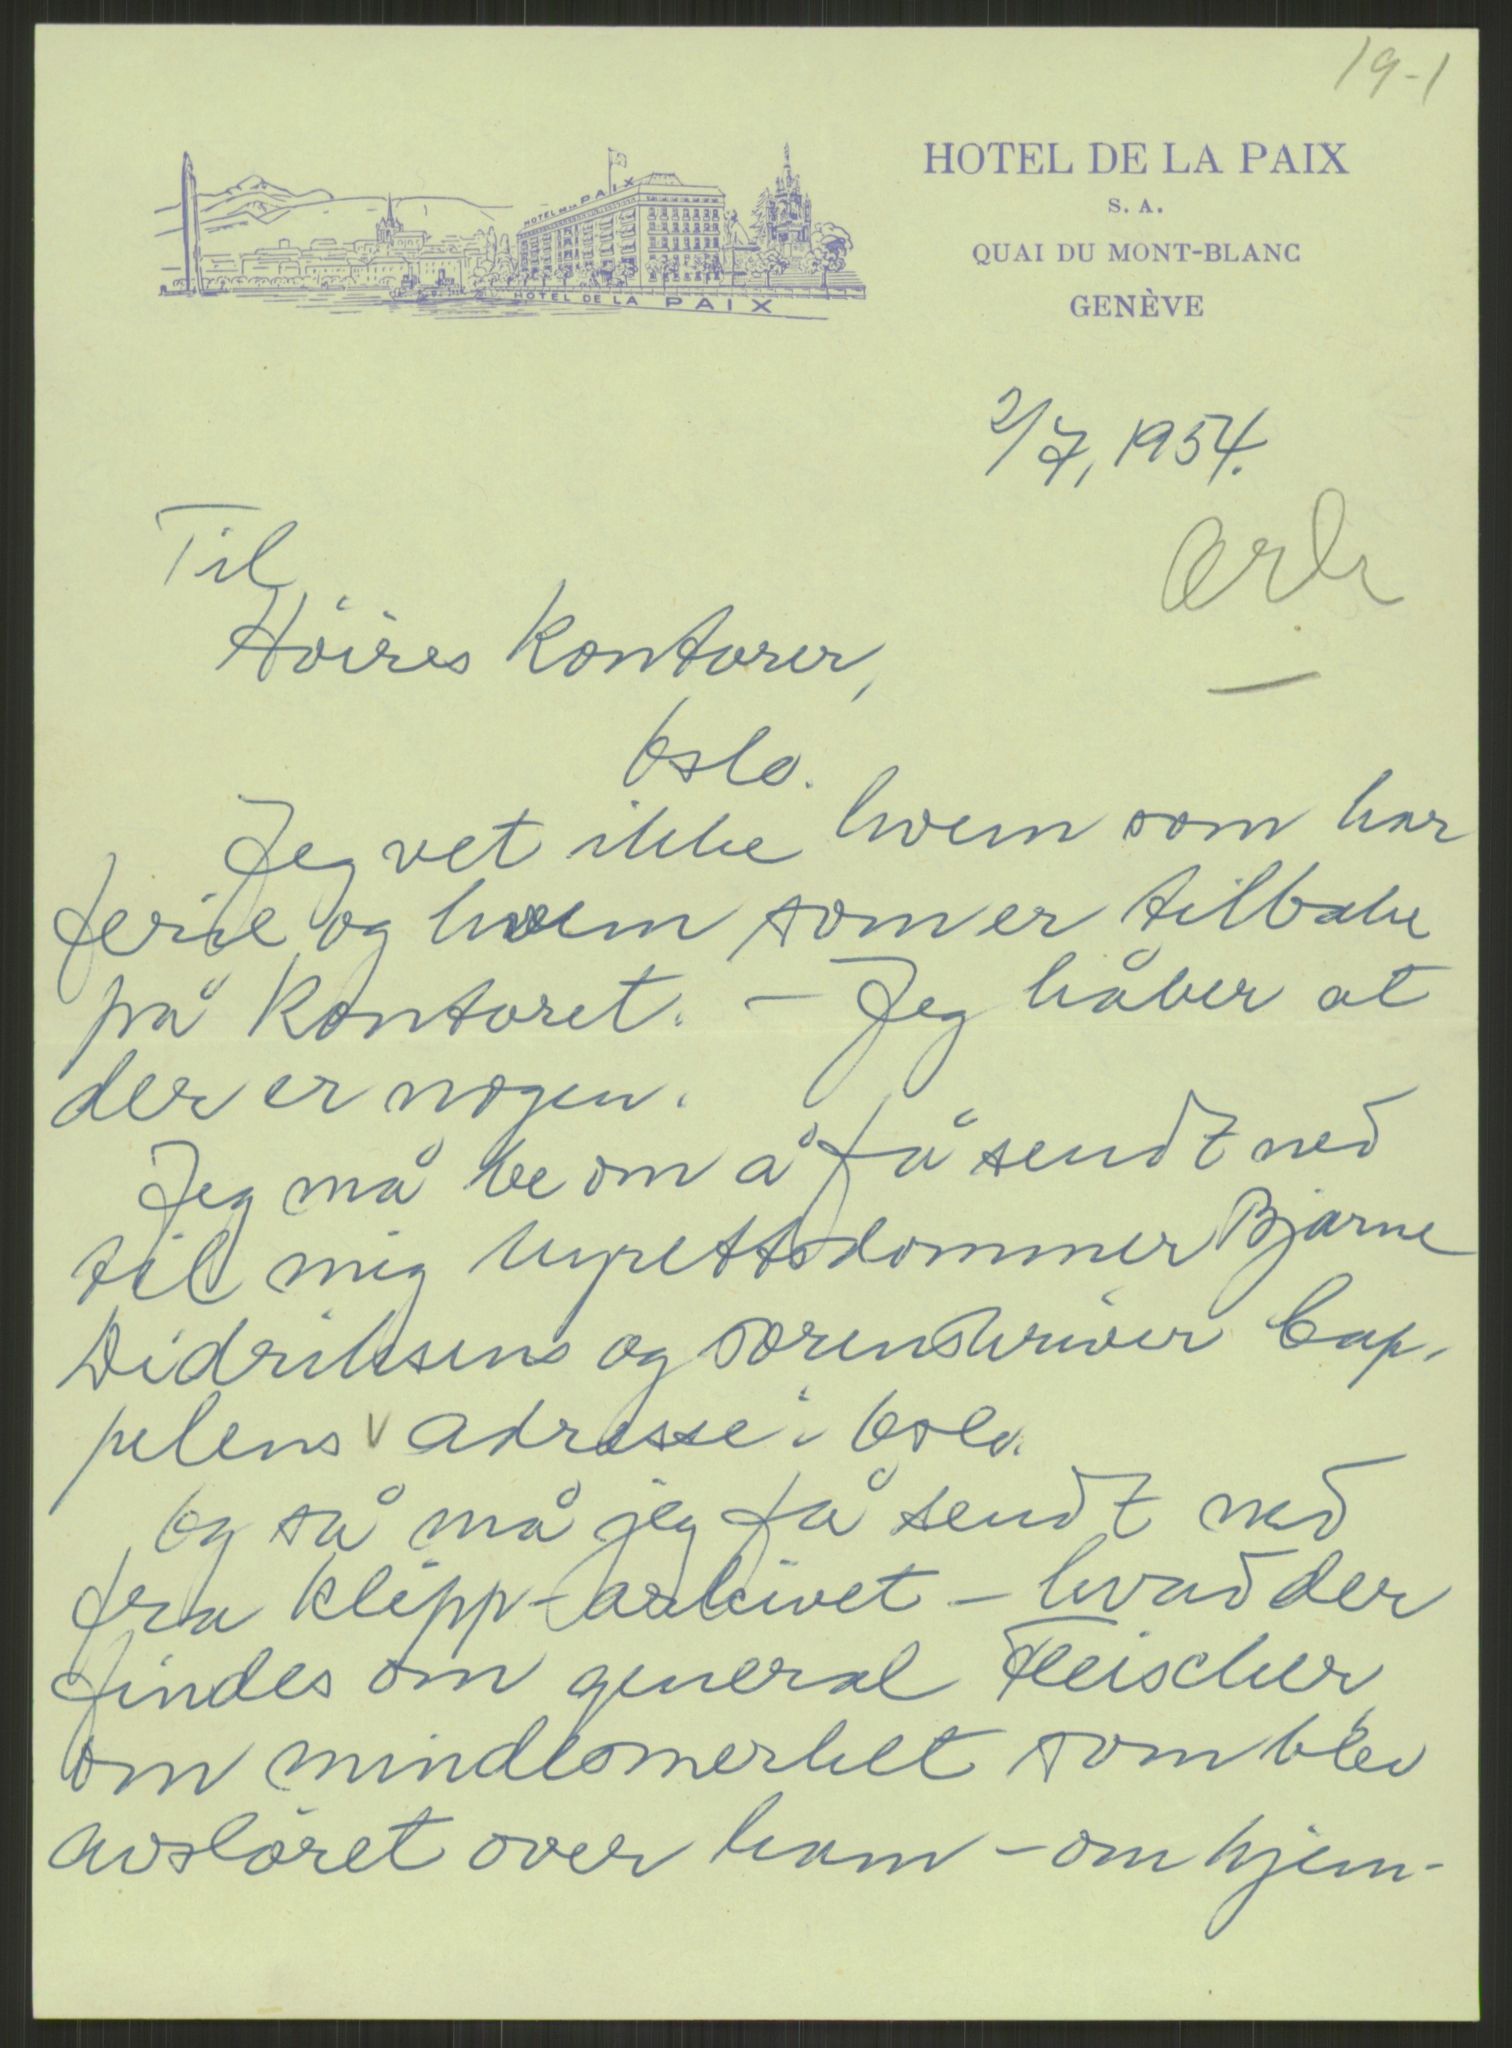 19-1
HOTEL DE LA PAIX
S. A.
QUAI DU MONT-BLANC
GENÈVE
HOTEL DE LA PAIX
HOTEL DE LA PAIX
2/7, 1954.
Til
Høires Kontorer,
Oslo.
Jeg vet ikke hvem som har
ferie og hvem som er tilbake
på Kontoret. – Jeg håber at
der er nogen.
Jeg må be om å få sendt ned
til mig byrettsdommer Bjarne
Didriksens og sorenskriver Cap-
pelens adresse i Oslo.
Og så må jeg få sendt ned
fra klipp-arkivet – hvad der
findes om general Fleischer,
om mindesmerket som blev
avsløret over ham – om hjem-